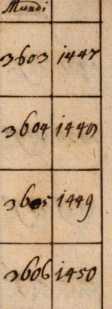 Mundi
3603 1447
3604 1448
3605 1449
3606 1450